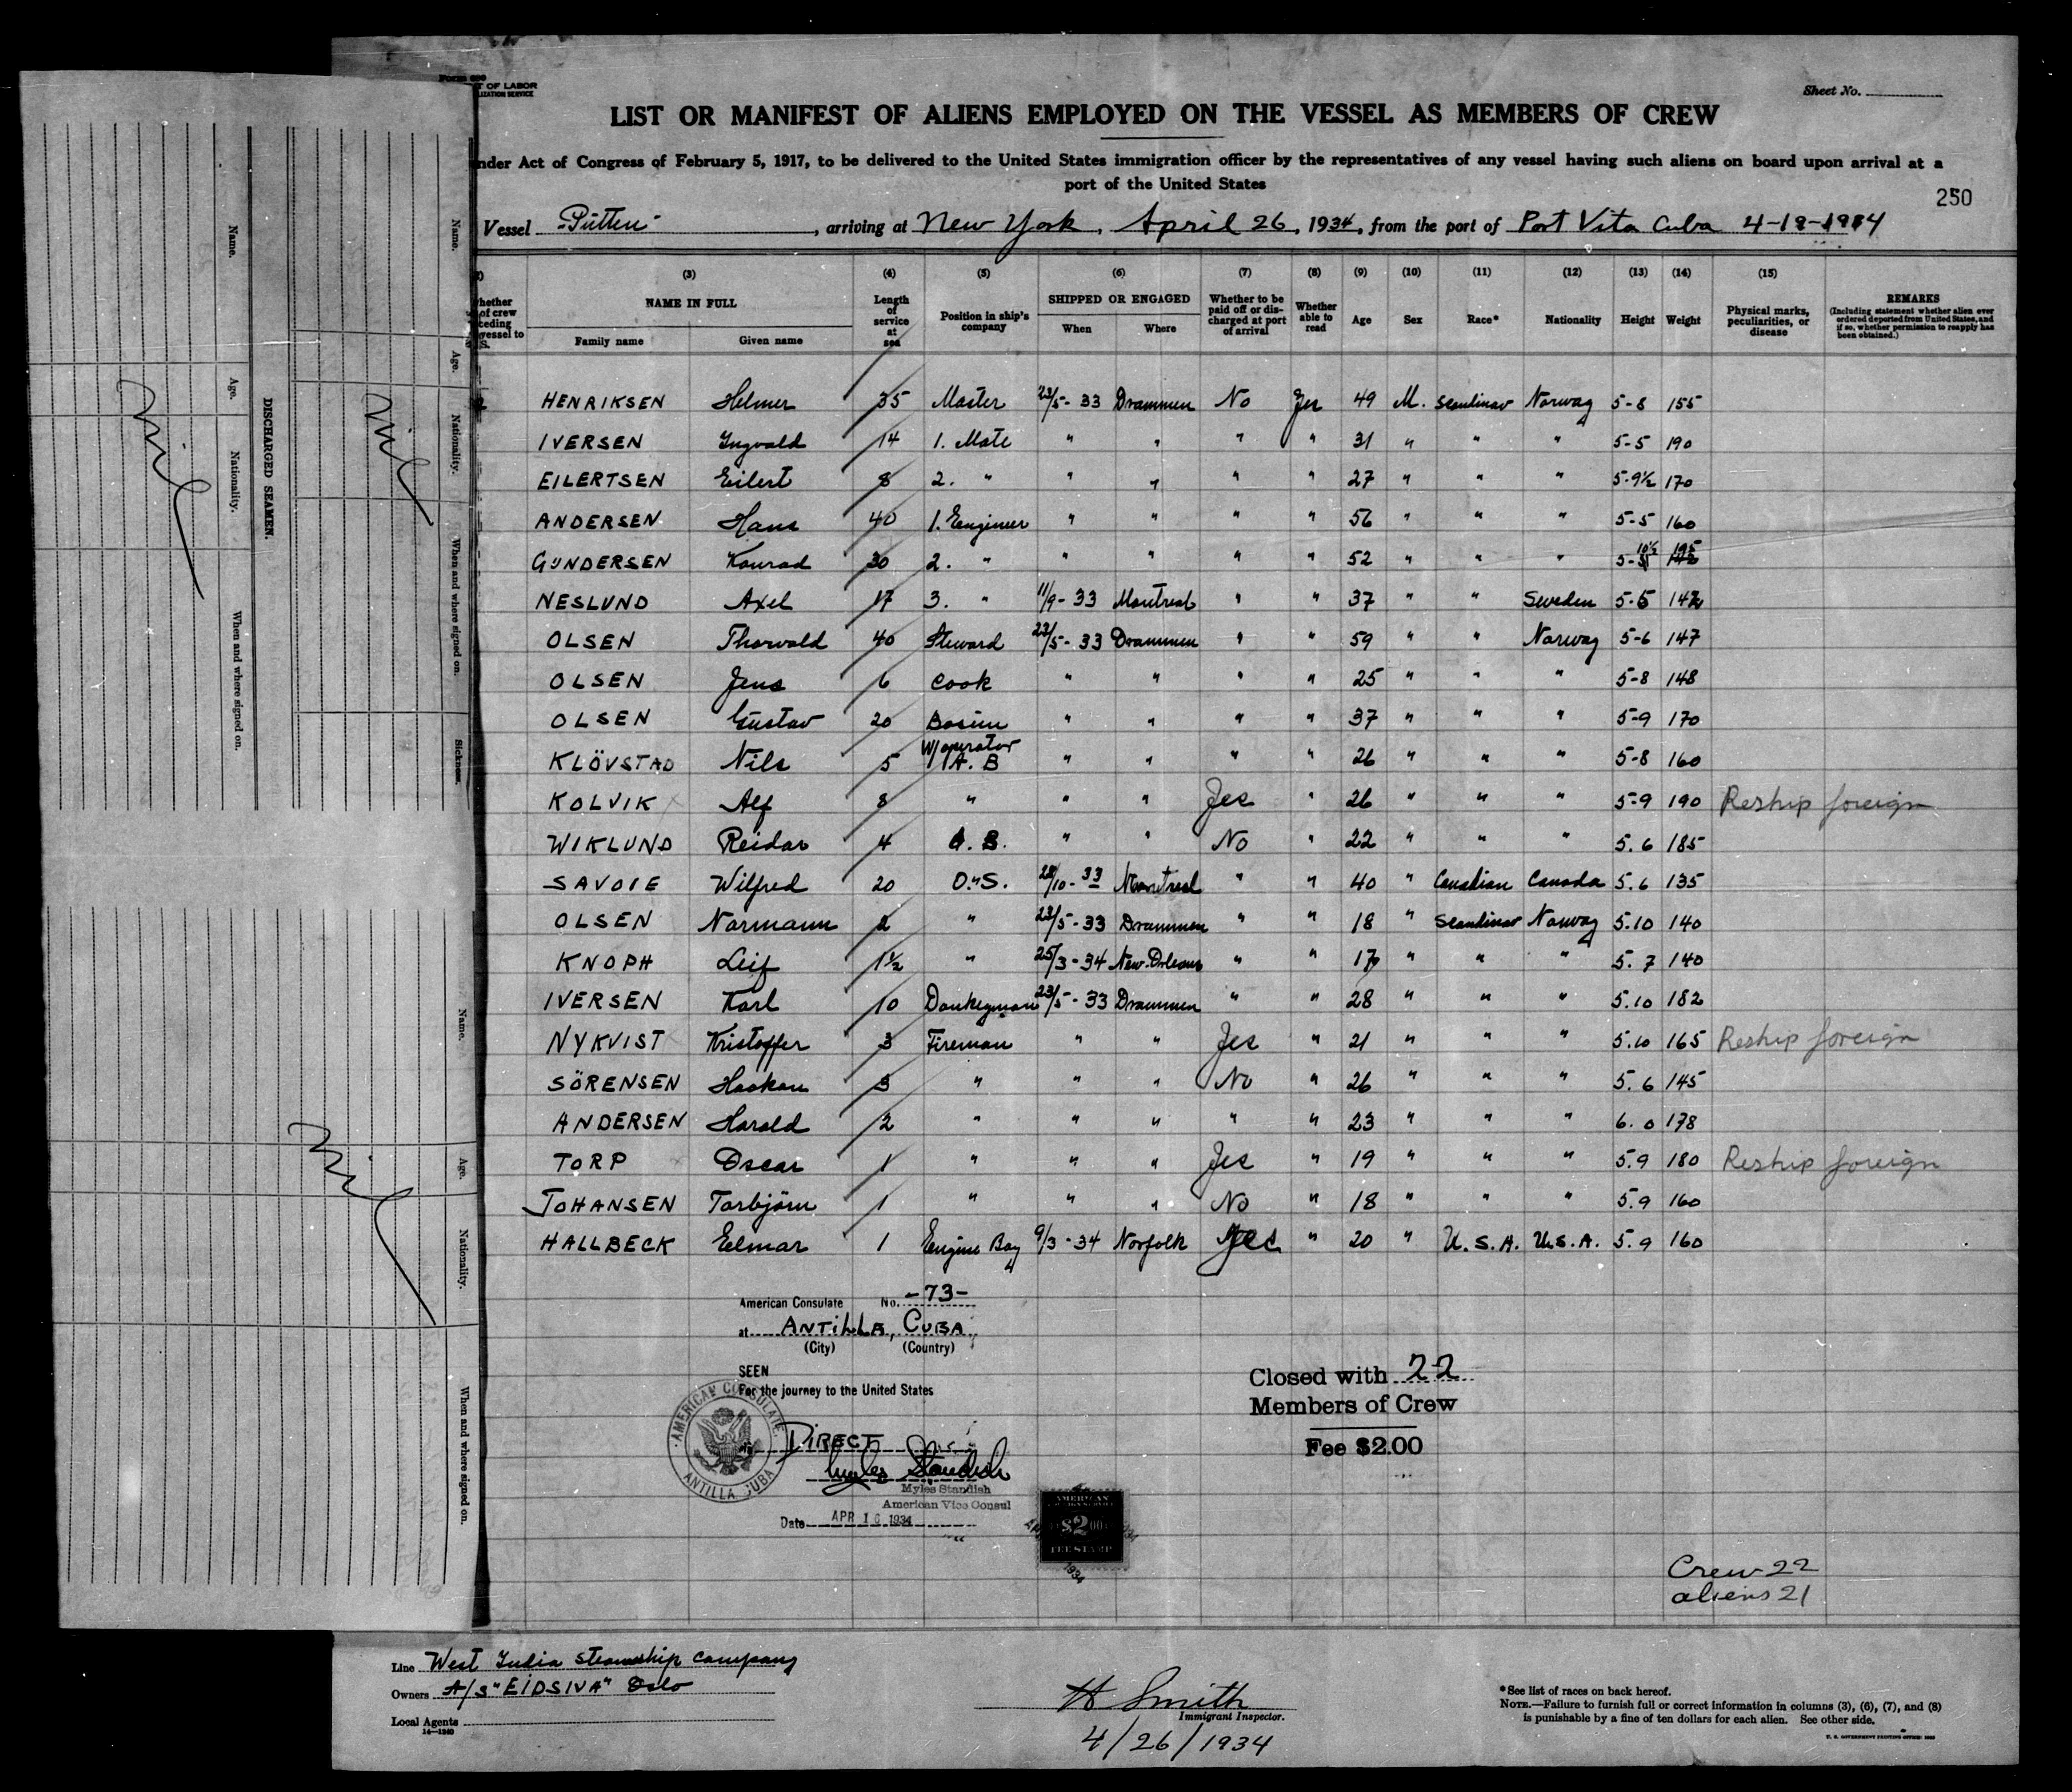 Form 680
T OF LABOR
LIZATION SERVICE
Sheet No.
LIST OR MANIFEST OF ALIENS EMPLOYED ON THE VESSEL AS MEMBERS OF CREW
nder Act of Congress of February 5, 1917, to be delivered to the United States immigration officer by the representatives of any vessel having such aliens on board upon arrival at a
port of the United States
250
Vessel Pütten, arriving at New York, April 26, 1934, from the port of Port Vita Cuba 4-18-1934
(3) (4) (5) (6) (7) (8) (9) (10) (11) (12) (13) (14) (15)
hether of crew ceding vessel to S.
NAME IN FULL
Family name
Given name
Length of service at sea
Position in ship's company
SHIPPED OR ENGAGED
When
Where
Whether to be paid off or discharged at port of arrival
Whether able to read
Age
Sex
Race*
Nationality
Height
Weight
Physical marks, peculiarities, or disease
REMARKS
(Including statement whether alien ever ordered deported from United States, and if so, whether permission to reapply has been obtained.)
HENRIKSEN Helmer 35 Master 23/5-33 Drammen No Jes 49 M. Scandinav Norway 5-8 155
IVERSEN Ingvald 14 1. Mate " " " " 31 " " " 5-5 190
EILERTSEN Eilert 8 2. " " " " " 27 " " " 5-9½ 170
ANDERSEN Hans 40 1. Engineer " " " " 56 " " " 5-5 160
GUNDERSEN Konrad 30 2. " " " " " 52 " " " 5-10½ 195
NESLUND Axel 17 3. " 11/9-33 Montreal " " 37 " " Sweden 5-5 142
OLSEN Thorvald 40 Steward 23/5-33 Drammen " " 59 " " Norway 5-6 147
OLSEN Jens 6 Cook " " " " 25 " " " 5-8 148
OLSEN Gustav 20 Bosun " " " " 37 " " " 5-9 170
KLÖVSTAD Nils 5 W/operator A. B " " " " 26 " " " 5-8 160
KOLVIK Alf 8 " " " Jes " 26 " " " 5-9 190 Reship foreign
WIKLUND Reidar 4 O. S. " " No " 22 " " " 5.6 185
SAVOIE Wilfred 20 O.S. 28/10-33 Montreal " " 40 " Canadian Canada 5.6 135
OLSEN Normann 2 " 23/5-33 Drammen " " 18 " Scandinav Norway 5.10 140
KNOPH Leif 1½ " 25/3-34 New-Orleans " " 17 " " " 5.7 140
IVERSEN Karl 10 Donkeyman 23/5-33 Drammen " " 28 " " " 5.10 182
NYKVIST Kristoffer 3 Fireman " " Jes " 21 " " " 5.10 165 Reship foreign
SÖRENSEN Haakon 3 " " " No " 26 " " " 5.6 145
ANDERSEN Harald 2 " " " " " 23 " " " 6.0 178
TORP Oscar 1 " " " Jes " 19 " " " 5.9 180 Reship foreign
JOHANSEN Torbjörn 1 " " " No " 18 " " " 5.9 160
HALLBECK Eelmar 1 Engine Boy 9/3-34 Norfolk Jes " 20 " U.S.A. U.S.A. 5.9 160
American Consulate No. -73-
at ANTILLA, CUBA
(City) (Country)
SEEN
For the journey to the United States
DIRECT
Myles Standish
Myles Standish
American Vice Consul
Date APR 16 1934
AMERICAN CONSULATE
ANTILLA, CUBA
AMERICAN
$2.00
FEE STAMP
1934
Closed with 22
Members of Crew
Fee $2.00
Crew 22
aliens 21
Line West India Steamship Company
Owners A/S "EIDSIVA" Oslo
Local Agents
14-1240
H Smith
Immigrant Inspector.
4/26/1934
*See list of races on back hereof.
NOTE.—Failure to furnish full or correct information in columns (3), (6), (7), and (8)
is punishable by a fine of ten dollars for each alien. See other side.
U. S. GOVERNMENT PRINTING OFFICE
Name. Age. Nationality. When and where signed on.
DISCHARGED SEAMEN.
Name. Age. Nationality. When and where signed on. Sickness.
Name. Age. Nationality. When and where signed on.
Nil
Nil
Nil